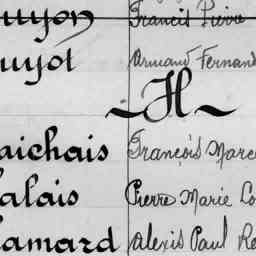 uyon Francis Pierre
uyot Armand Fernand
~H~
aichais François Marce
alais Pierre Marie Lo
lamard Alexis Paul Re